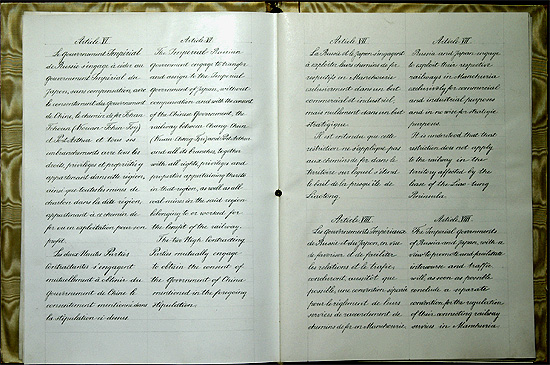 Article VI.
Le Gouvernement Impérial
de Russie s'engage à céder au
Gouvernement Impérial du
Japon, sans compensation, avec
le consentement du Gouvernement
de Chine, le chemin de fer
Tchoun
et Port-Arthur et tous ses
embranchements avec tous les
droits, privilèges et propriétés y
appartenant dans cette région,
ainsi que toutes les mines de
charbon dans la dite région,
appartenant à ce chemin de
fer ou en exploitation pour son
profit.
Les deux Hautes Parties
Contractantes s'engagent
mutuellement à obtenir du
Gouvernement de Chine le
consentement mentionné dans
la stipulation ci-dessus.
Article VI.
The Imperial Russian
Government engage to transfer
and assign to the Imperial
Government of Japan, without
compensation and with the consent
of the Chinese Government, the
railway between Chang-chun
and Port Arthur
and all its branches, together
with all rights, privileges and
properties appertaining thereto
in that region, as well as all
coal mines in the said region
belonging to or worked for
the benefit of the railway.
The two High Contracting
Parties mutually engage
to obtain the consent of
the Government of China
mentioned in the foregoing
stipulation.
Article VII.
La Russie et le Japon s'engagent
à exploiter leurs chemins de fer
respectifs en Manchourie
exclusivement dans un but
commercial et industriel,
mais nullement dans un but
stratégique.
Il est entendu que cette
restriction ne s'applique pas
aux chemins de fer dans le
territoire sur lequel s'étend
le bail de la presqu'île de
Liaotong.
Article VII.
Russia and Japan engage
to exploit their respective
railways in Manchuria
exclusively for commercial
and industrial purposes
and in no wise for strategic
purposes.
It is understood that that
restriction does not apply
to the railway in the
territory affected by the
lease of the Liao-tung
Peninsula.
Article VIII.
Les Gouvernements Impériaux
de Russie et du Japon, en vue
de favoriser et de faciliter
les relations et le trafic,
concluront, aussitôt que
possible, une convention séparée
pour le règlement de leurs
services de raccordement de
chemins de fer en Manchourie.
Article VIII.
The Imperial Governments
of Russia and Japan, with a
view to promote and facilitate
intercourse and traffic
will, as soon as possible
conclude a separate
convention for the regulation
of their connecting railway
services in Manchuria.